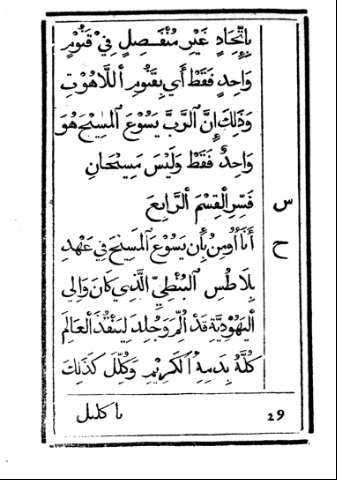 بِاتِّحَادٍ غَيْرِ مُنْفَصِلٍ فِيْ قَنُوْمٍ
وَاحِدٍ فَقَطْ أَيْ بِقَنُوْمِ أَللَّاهُوْتِ
وَذَلِكَ إِنَّ ٱلرَّبَّ يَسُوْعَ ٱلمَسِيْحَ هُوَ
وَاحِدٌ فَقَطْ وَلَيْسَ مَسِيْحَانِ
س فَسِّرِ ٱلْقِسْمَ ٱلرَّابِعَ
ج أَنَا أُومِنُ بِأَن يَسُوْعَ ٱلمَسِيْحَ فِيْ عَهْدِ
بِلَاطُسِ ٱلبُنْطِيِّ ٱلَّذِيْ كَانَ وَالِيْ
ٱلْيَهُوْدِيَّةِ قَدْ أُلِّمَ وَجُلِدَ لِيَنْقُذَ ٱلعَالَمَ
كُلَّهُ بِدَمِهِ ٱلْكَرِيْمِ وَكُلِّلَ كَذَلِكَ
29 باكليل